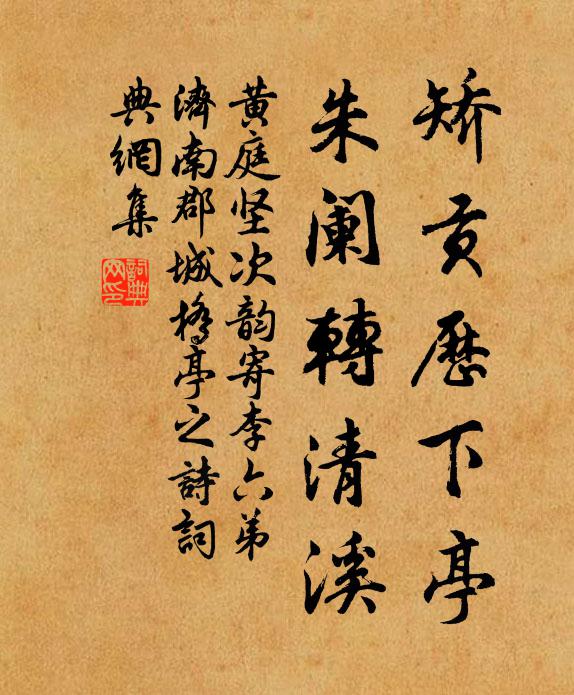 矫贡歷下亭
朱阑轉清溪
黄庭坚次韵寄李六弟
濟南郡城橋亭之詩詞
典網集
詞典
网印